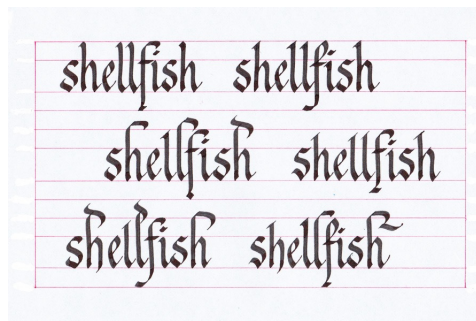 shellfish shellfish
shellfish shellfish
shellfish shellfish